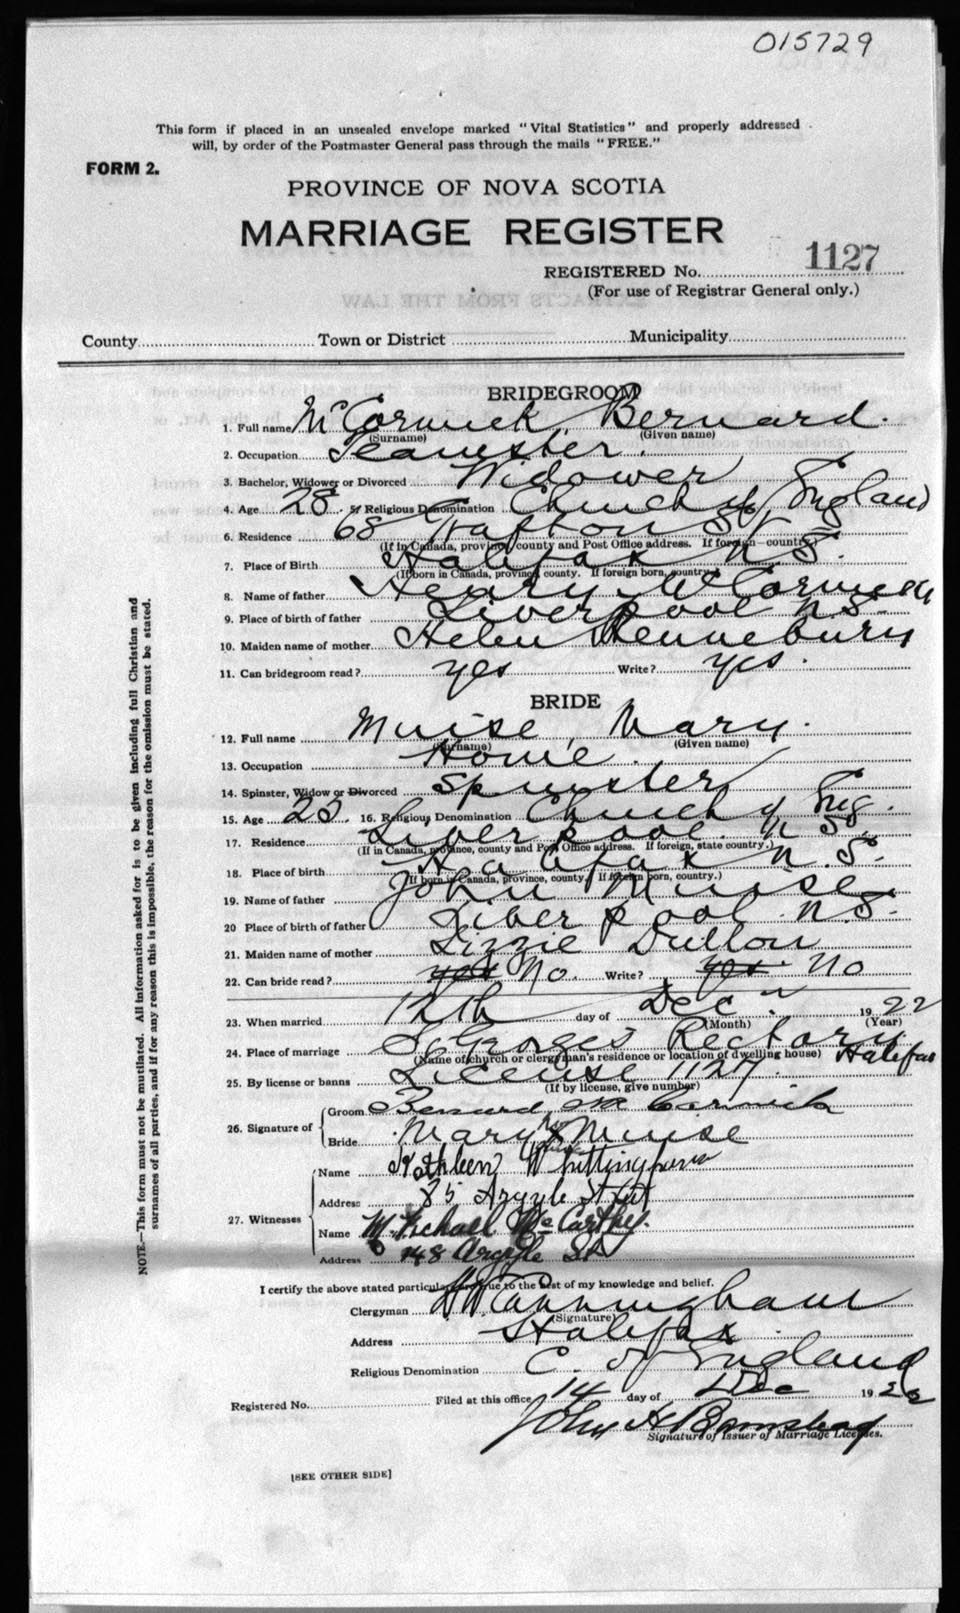 015729
This form if placed in an unsealed envelope marked "Vital Statistics" and properly addressed
will, by order of the Postmaster General pass through the mails "FREE."
FORM 2.
PROVINCE OF NOVA SCOTIA
MARRIAGE REGISTER
REGISTERED No. 1127
(For use of Registrar General only.)
County Town or District Municipality
BRIDEGROOM
1. Full name McCormick, Bernard.
(Surname) (Given name)
2. Occupation Teamster.
3. Bachelor, Widower or Divorced Widower
4. Age 28. 5. Religious Denomination Church of England
6. Residence 68 Grafton St
(If in Canada, province, county and Post Office address. If foreign—country)
7. Place of Birth Halifax N S.
(If born in Canada, province, county. If foreign born, country.)
8. Name of father Henry McCormick
9. Place of birth of father Liverpool N.S.
10. Maiden name of mother Helen Hennebury
11. Can bridegroom read? yes Write? yes.
BRIDE
12. Full name Muise, Mary.
(Surname) (Given name)
13. Occupation Home.
14. Spinster, Widow or Divorced Spinster
15. Age 23. 16. Religious Denomination Church of Eng.
17. Residence Liverpool. N S.
(If in Canada, province, county and Post Office address. If foreign, state country.)
18. Place of birth Halifax N. S.
(If born in Canada, province, county. If foreign born, country.)
19. Name of father John Muise.
20 Place of birth of father Liverpool N.S.
21. Maiden name of mother Lizzie
22. Can bride read? yes No. Write? yes. No
23. When married 12th day of Dec 1922
(Month) (Year)
24. Place of marriage St Georges Rectory Halifax
(Name of church or clergyman's residence or location of dwelling house)
25. By license or banns License 1127.
(If by license, give number)
26. Signature of
Groom Bernard McCormick
Bride Mary X Muise
27. Witnesses
Name Kathleen Whittingham
Address 85 Argyle Street
Name Michael McCarthy.
Address 148 Argyle St
I certify the above stated particulars are true to the best of my knowledge and belief.
Clergyman H W Cunningham
(Signature)
Address Halifax.
Religious Denomination C. of England
Registered No. Filed at this office 14 day of Dec 1922
John H Barnstead
Signature of Issuer of Marriage Licenses.
[SEE OTHER SIDE]
NOTE.—This form must not be mutilated. All information asked for is to be given including full Christian and
surnames of all parties, and if for any reason this is impossible, the reason for the omission must be stated.